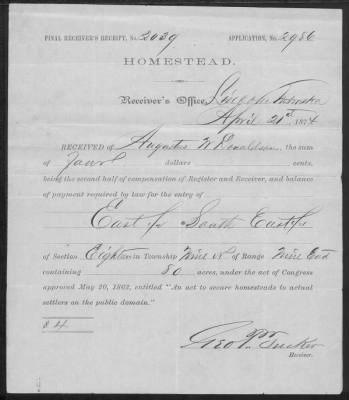 FINAL RECEIVER'S RECEIPT, No. 2039 APPLICATION, No. 2986
HOMESTEAD.
Receiver's Office, Lincoln Nebraska
April 21st 1874
RECEIVED of Augustus W Donaldson, the sum
of Four dollars cents,
being the second half of compensation of Register and Receiver, and balance
of payment required by law for the entry of
East ½ South East ¼
of Section Eighteen in Township Nine N of Range Nine East
containing 80 acres, under the act of Congress
approved May 20, 1862, entitled "An act to secure homesteads to actual
settlers on the public domain."
$ 4
Geo. P. Tucker
Receiver.